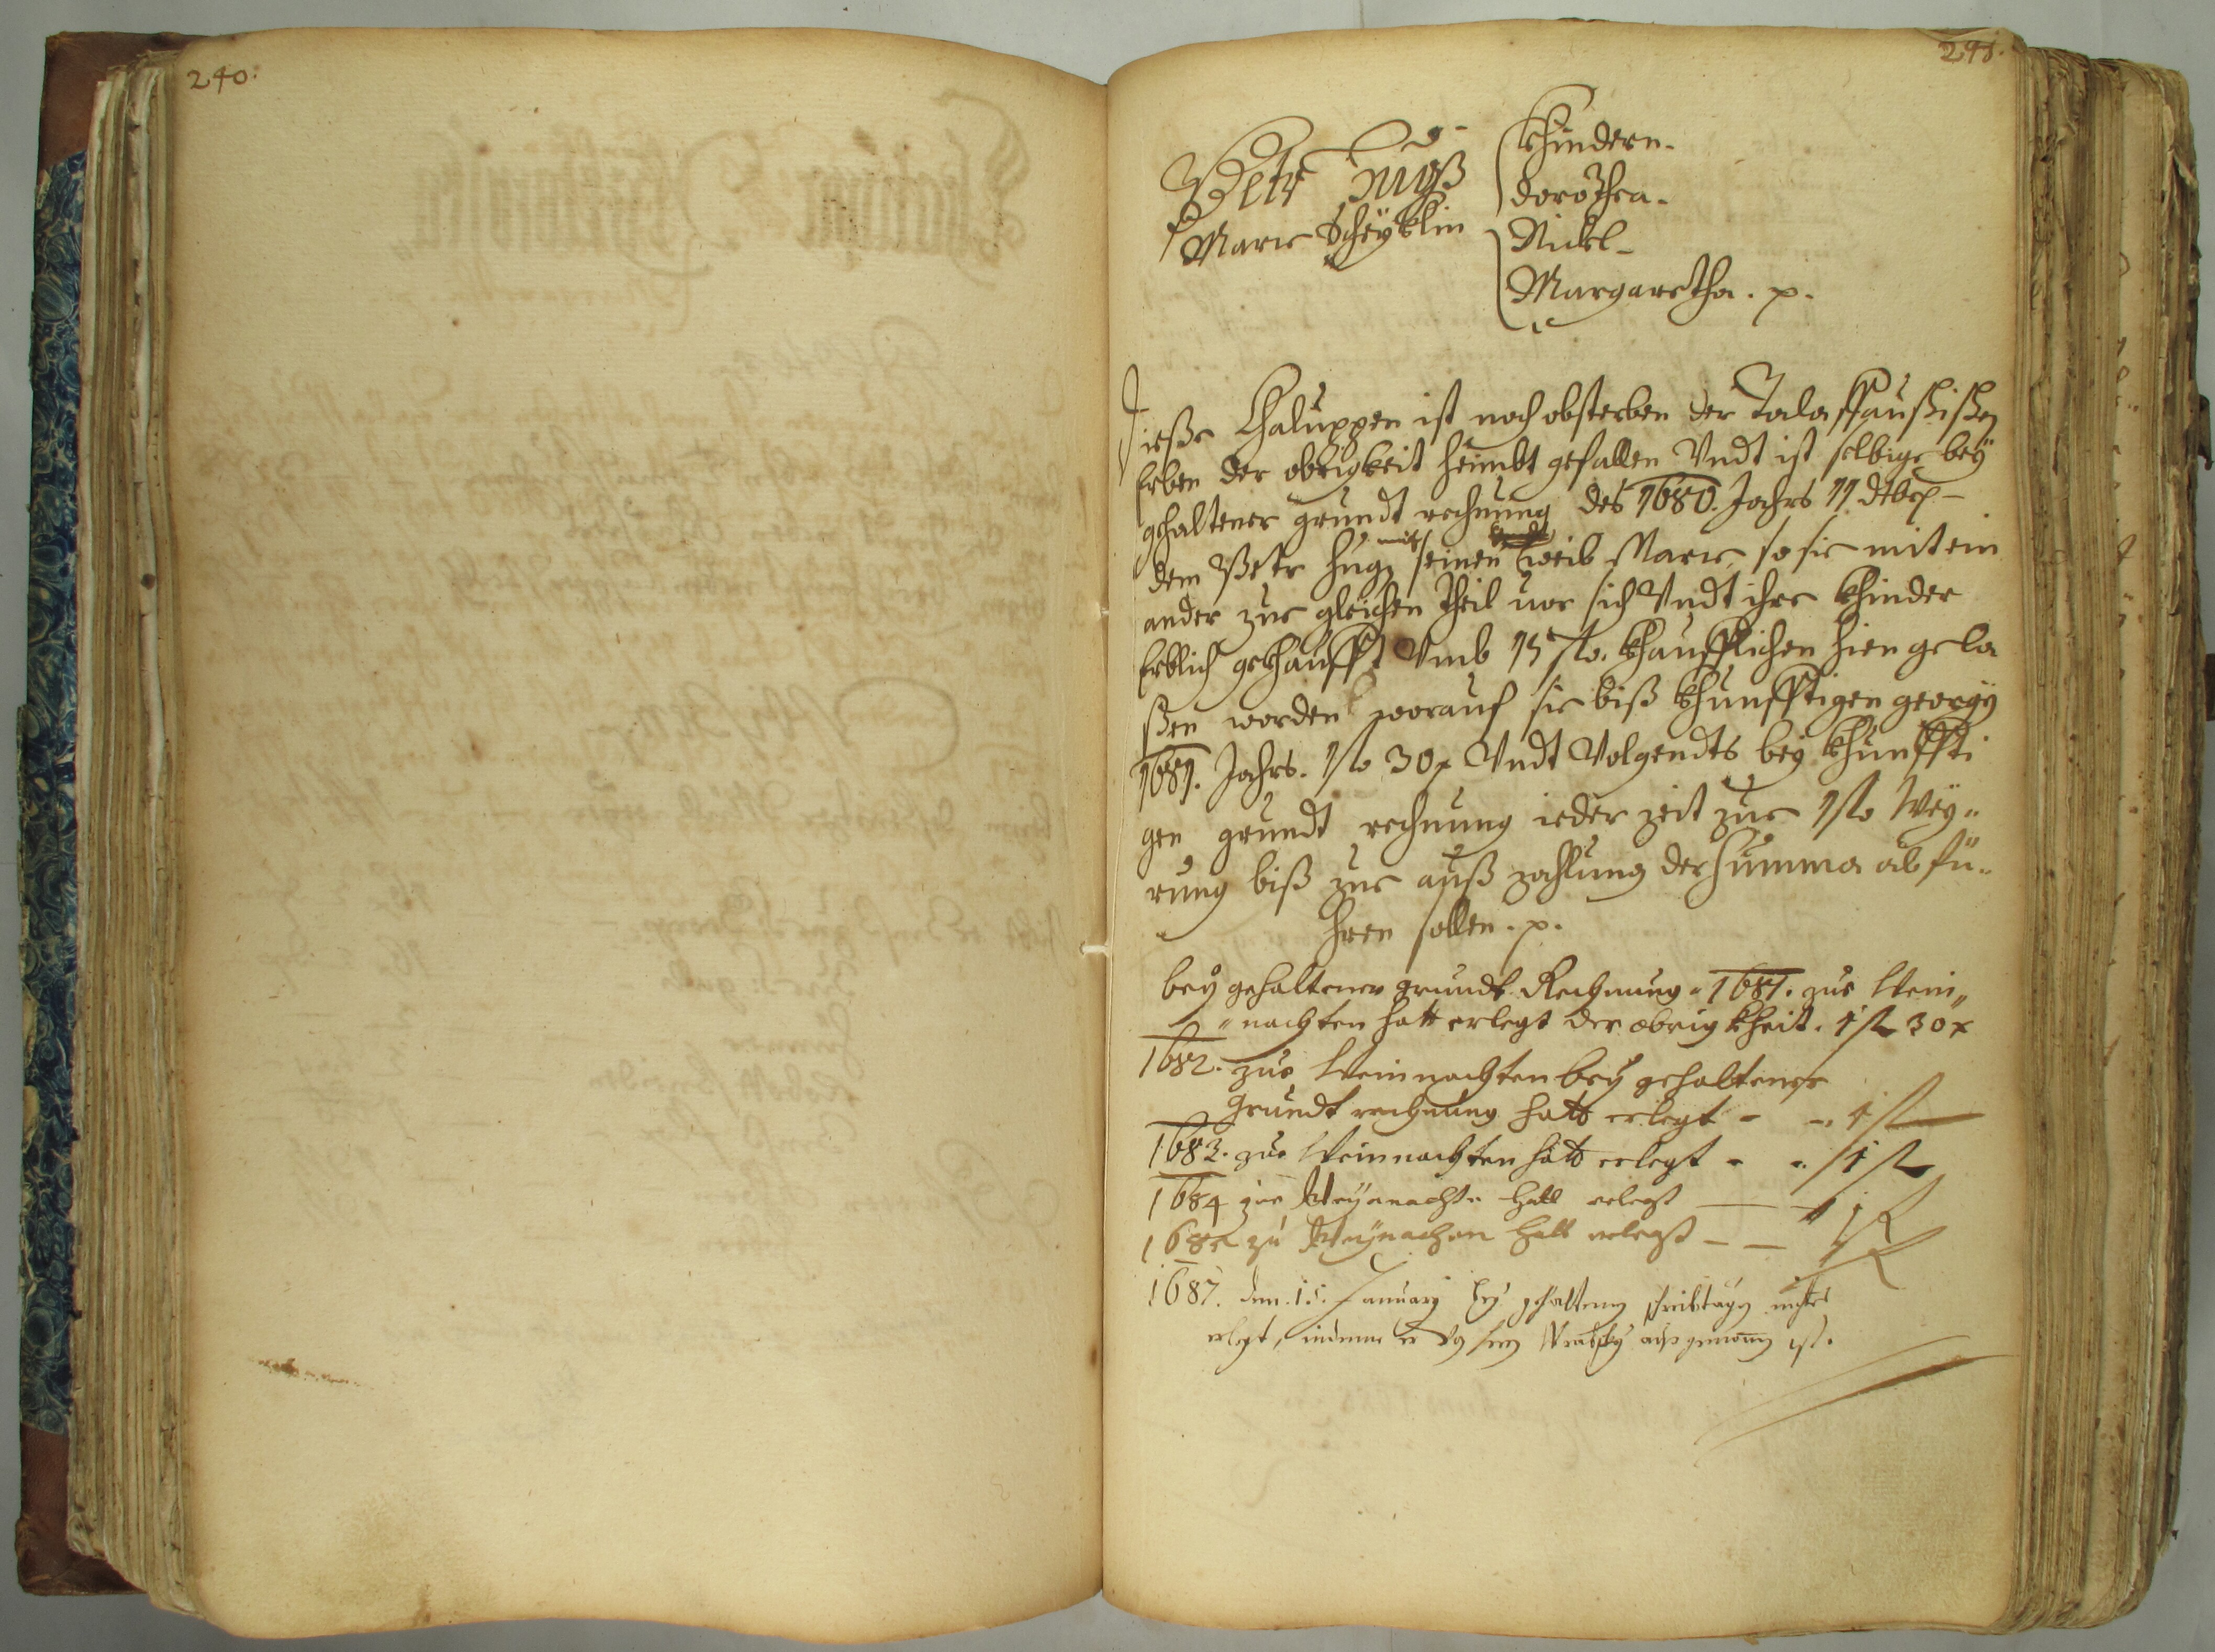 240.
241.
Petr Hugß
Marie Scheyblin
Khindern.
Dorothea.
Nickl.
Margaretha. p.
Dieße Chaluppen ist noch obsterben der
Erben der obrigkeit heimbt gefallen Vndt ist selbige beÿ
gehaltener grundt rechnung des 1680. Jahrs 11 debr
dem Petr Hugß mit seinen weib Marie, so sie mit ein
ander zue gleichen theil vor sich Vndt ihre Khinder
Erblich gekhaufft Vmb 15 ßo. khaufflichen hien gela
ßen worden worauf sie biß khunfftigen georgÿ
1681. Jahrs. 1 ßo 30 x Vndt Volgendts beÿ khunffti
gen grundt rechnung ieder zeit zue 1 ßo Weÿ„
rung biß zue auß zahlung der Summa ab fü„
hren sollen. p.
beÿ gehaltener grundt Rechnung 1681. zue Wein„
„nachten hatt erlegt der obrigkheit. 1 ß 30 x
1682. zue Weinnachten beÿ gehaltener
grundt rechnung hatt erlegt - 1 ß
1683. zue Weinnachten hatt erlegt - 1 ß
1684 zue Weÿnachten hatt erlegt — 1 ß
1685 zu Weÿnachen hatt erlegt — 1 ß
1687. den. 15. January beÿ gehalteny schreibtagen nichts
erlegt, indeme er ist.